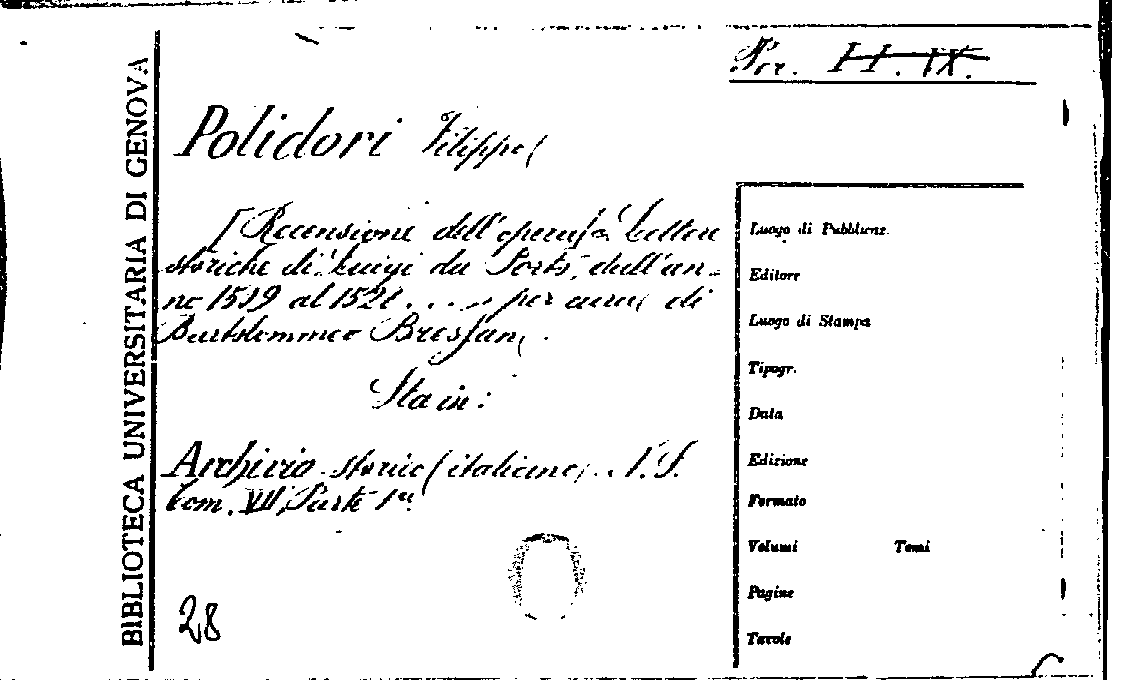 BIBLIOTECA UNIVERSITARIA DI GENOVA
Per. II. IX.
Polidori Filippo
[Recensione dell'opera: Lettere
storiche di Luigi da Porto, dall'an-
no 1509 al 1528 .... per cura di
Bartolommeo Bressan
Sta in:
Archivio storico italiano, N.S.
tom. VII, Parte 1ª
28
Luogo di Pubblicaz.
Editore
Luogo di Stampa
Tipogr.
Data
Edizione
Formato
Volumi Tomi
Pagine
Tavole